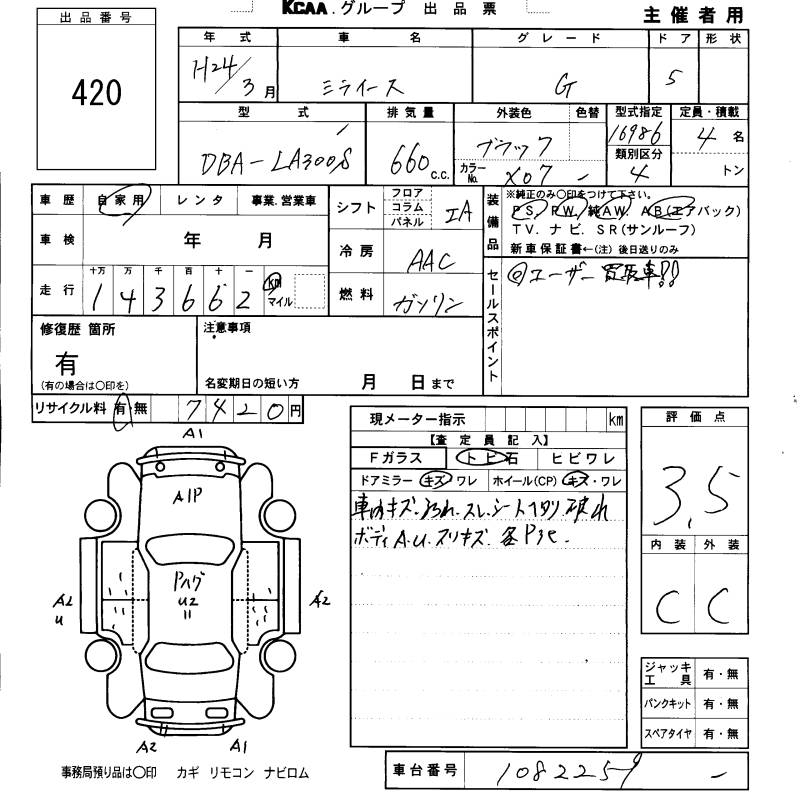 KCAA.グループ 出品票
主催者用
出品番号
420
年式 車名 グレード ドア 形状
H24/3月 ミライース G 5
型式 排気量 外装色 色替 型式指定 定員・積載
DBA-LA300S 660 c.c. ブラック 16986 4名
カラーNo. X07 - 類別区分 4 トン
車歴 自家用 レンタ 事業.営業車
シフト フロア コラム パネル IA
装備品
※純正のみ〇印をつけて下さい。
PS. PW. 純AW. AB(エアバック)
TV. ナビ. SR(サンルーフ)
新車保証書←(注)後日送りのみ
車検 年 月
冷房 AAC
走行 十万 万 千 百 十 一
143662 km マイル
燃料 ガソリン
セールスポイント
◎ユーザー買取車!!
修復歴箇所
有
(有の場合は〇印を)
注意事項
名変期日の短い方 月 日まで
リサイクル料 有・無 7420円
現メーター指示 km
【査定員記入】
Fガラス トビ石 ヒビワレ
ドアミラー キズ ワレ ホイール(CP) キズ・ワレ
車内キズ.ヨゴレ.スレ.シート切り.破れ
ボディA.U.スリキズ.各
評価点
3.5
内装 外装
C C
A1
A1P
Pハゲ
U2
A2
U
A2
A2
A1
ジャッキ 工具 有・無
パンクキット 有・無
スペアタイヤ 有・無
事務局預り品は〇印 カギ リモコン ナビロム
車台番号 1082259 -